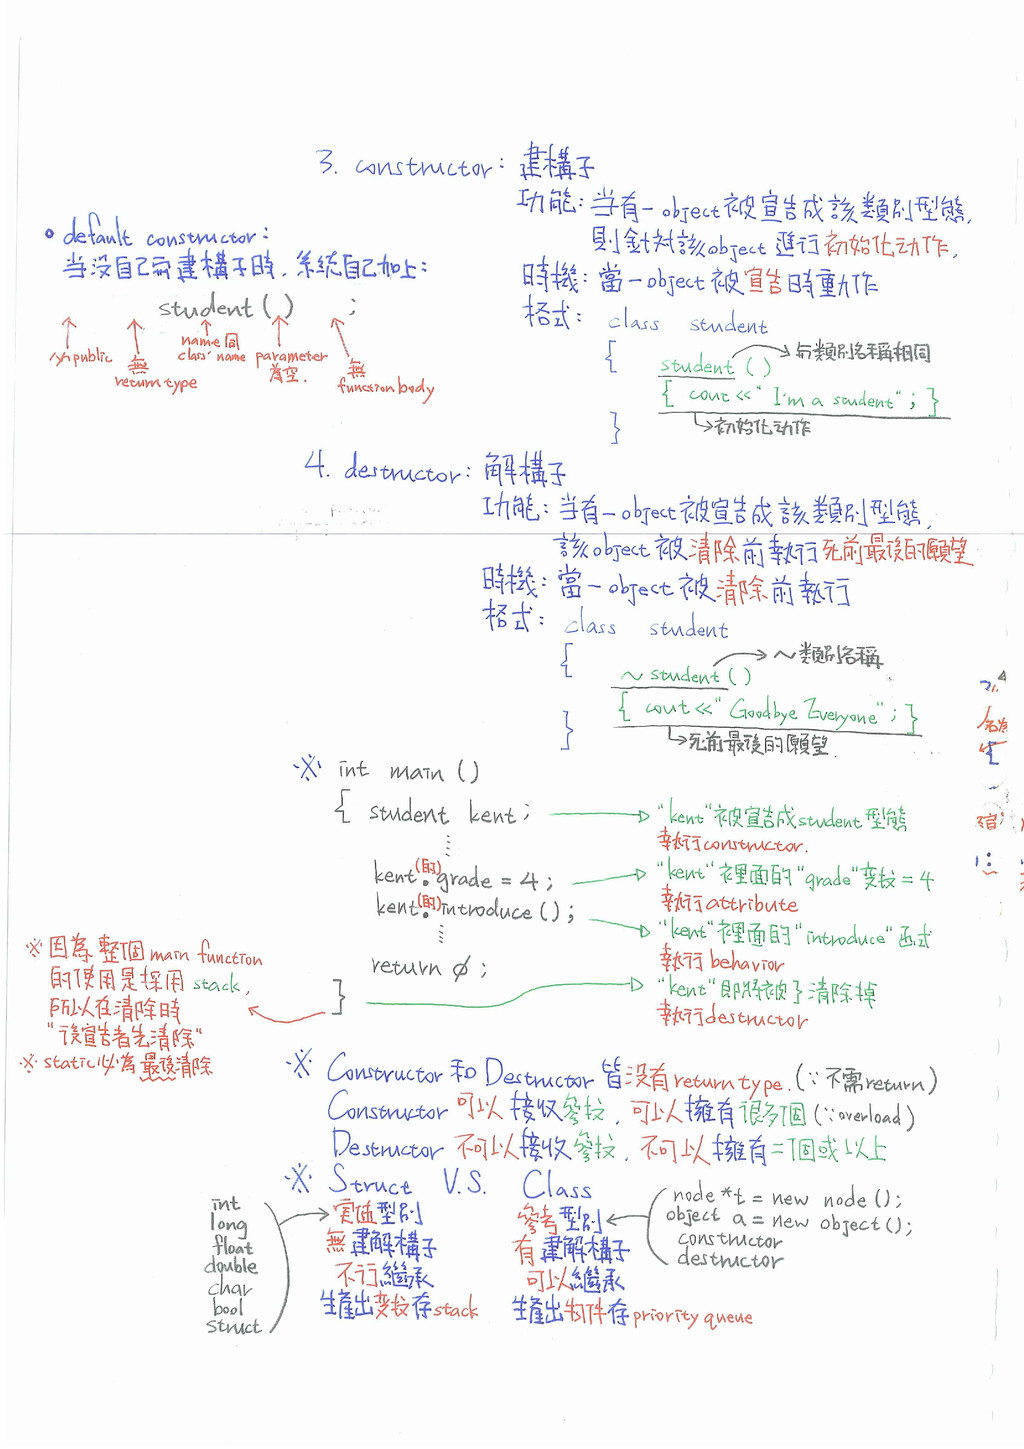 3. constructor: 建構子
功能: 当有一object被宣告成該類別型態,
則針对該object 進行初始化动作,
時機: 當一object被宣告時動作
格式: class student
{
student ( ) 与類別名稱相同
{ cout << " I'm a student" ; }
初始化动作
}
• default constructor:
当没自己寫建構子時, 系統自己加上:
student ( ) ;
public
無
return type
name同
class' name
parameter
為空.
無
function body
4. destructor: 解構子
功能: 当有一object被宣告成該類別型態,
該object被清除前執行死前最後的願望
時機: 當一object被清除前執行
格式: class student
{
~ student ( ) ~類別名稱
{ cout << " Goodbye Everyone" ; }
死前最後的願望.
}
※ int main ( )
{ student kent ; "kent"被宣告成student型態
執行constructor.
kent.(的)grade = 4 ; "kent"裡面的"grade"变数=4
執行attribute
kent.(的)introduce ( ) ; "kent"裡面的"introduce"函式
執行behavior
return ø ;
} "kent"即將被了清除掉
執行destructor
※ 因為整個main function
的使用是採用stack,
所以在清除時
"後宣告者先清除"
※ static必為最後清除
※ Constructor 和 Destructor 皆没有return type. (∵不需return)
Constructor 可以接收參数, 可以擁有很多個 (∵overload)
Destructor 不可以接收參数, 不可以擁有二個或以上
※ Struct V.S. Class
实值型別 參考型別
無建解構子 有建解構子
不行繼承 可以繼承
生產出变数存stack 生產出物件存priority queue
int
long
float
double
char
bool
struct
node *t = new node ( );
object a = new object ( );
constructor
destructor